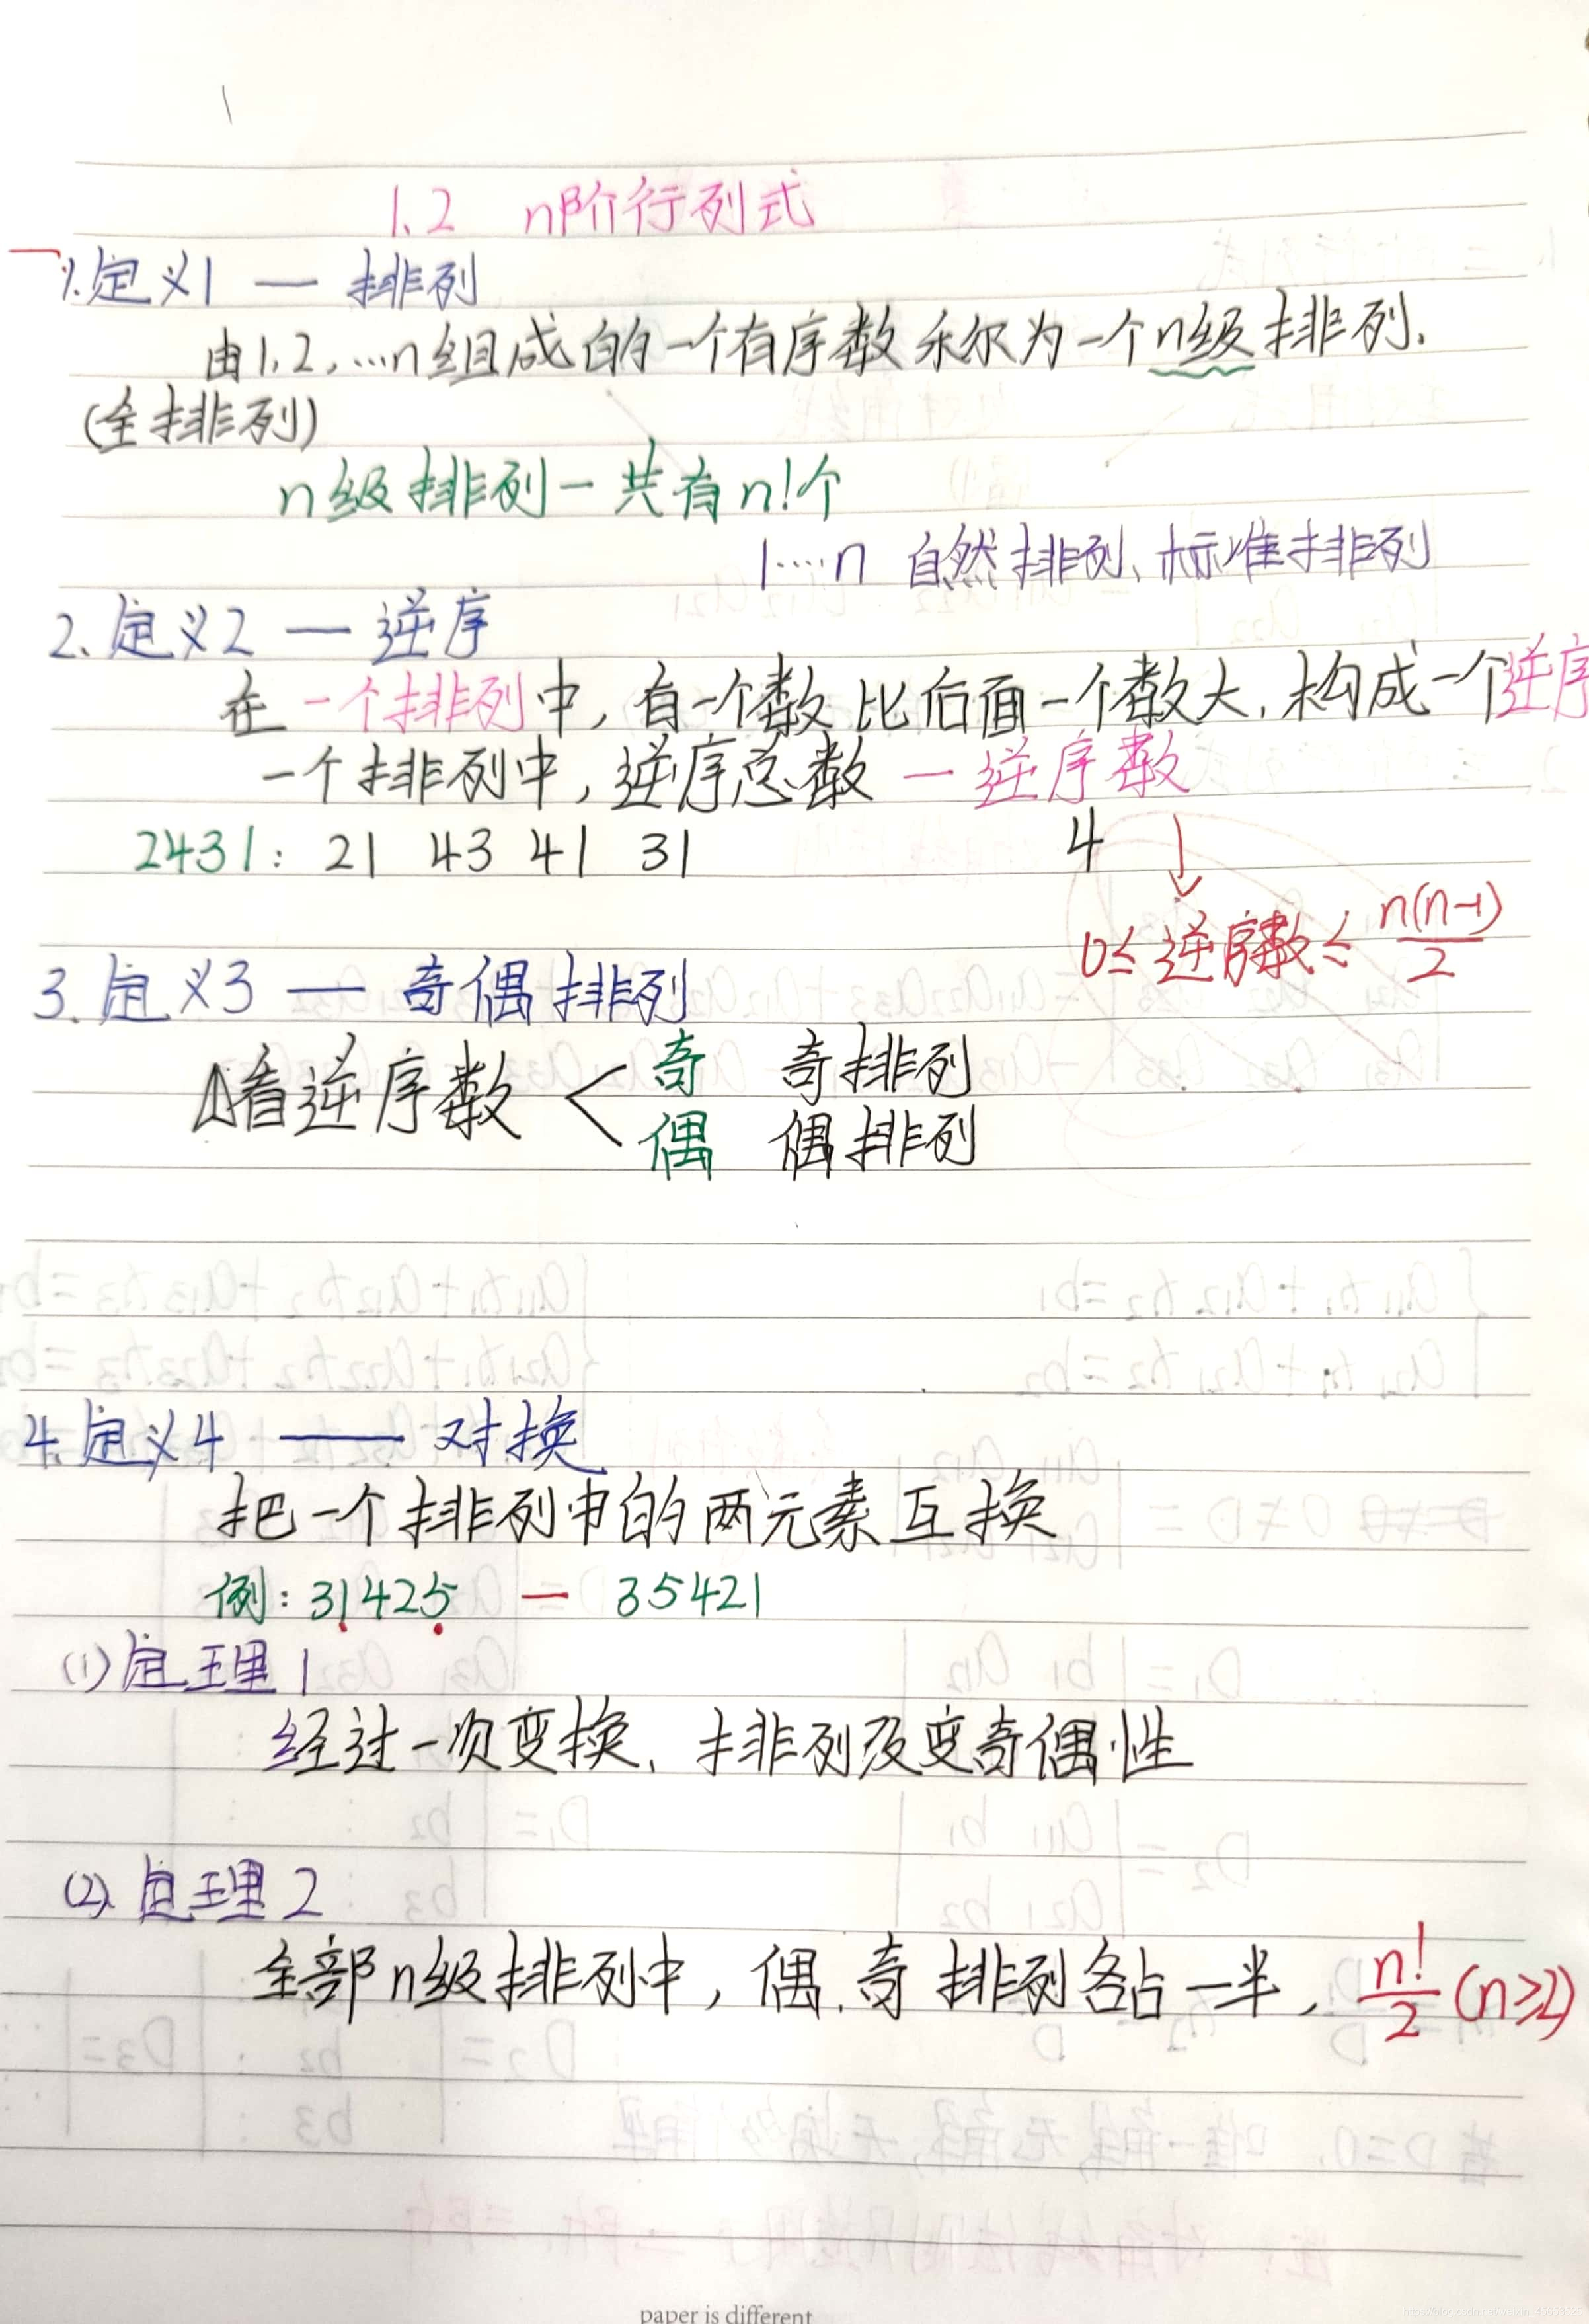 1.2 n阶行列式
1.定义1 — 排列
由1,2,…n组成的一个有序数称为一个n级排列.
(全排列)
n级排列一共有n!个
1……n 自然排列、标准排列
2、定义2 — 逆序
在一个排列中,有一个数比后面一个数大,构成一个逆序
一个排列中,逆序总数 — 逆序数
2431: 21 43 41 31 4 ↓
0≤逆序数≤ n(n-1)/2
3.定义3 — 奇偶排列
看逆序数 < 奇 奇排列
偶 偶排列
4.定义4 —— 对换
把一个排列中的两元素互换
例: 31425 — 35421
(1)定理1
经过一次变换,排列改变奇偶性
(2)定理2
全部n级排列中,偶.奇排列各占一半, n!/2 (n≥2)
paper is different